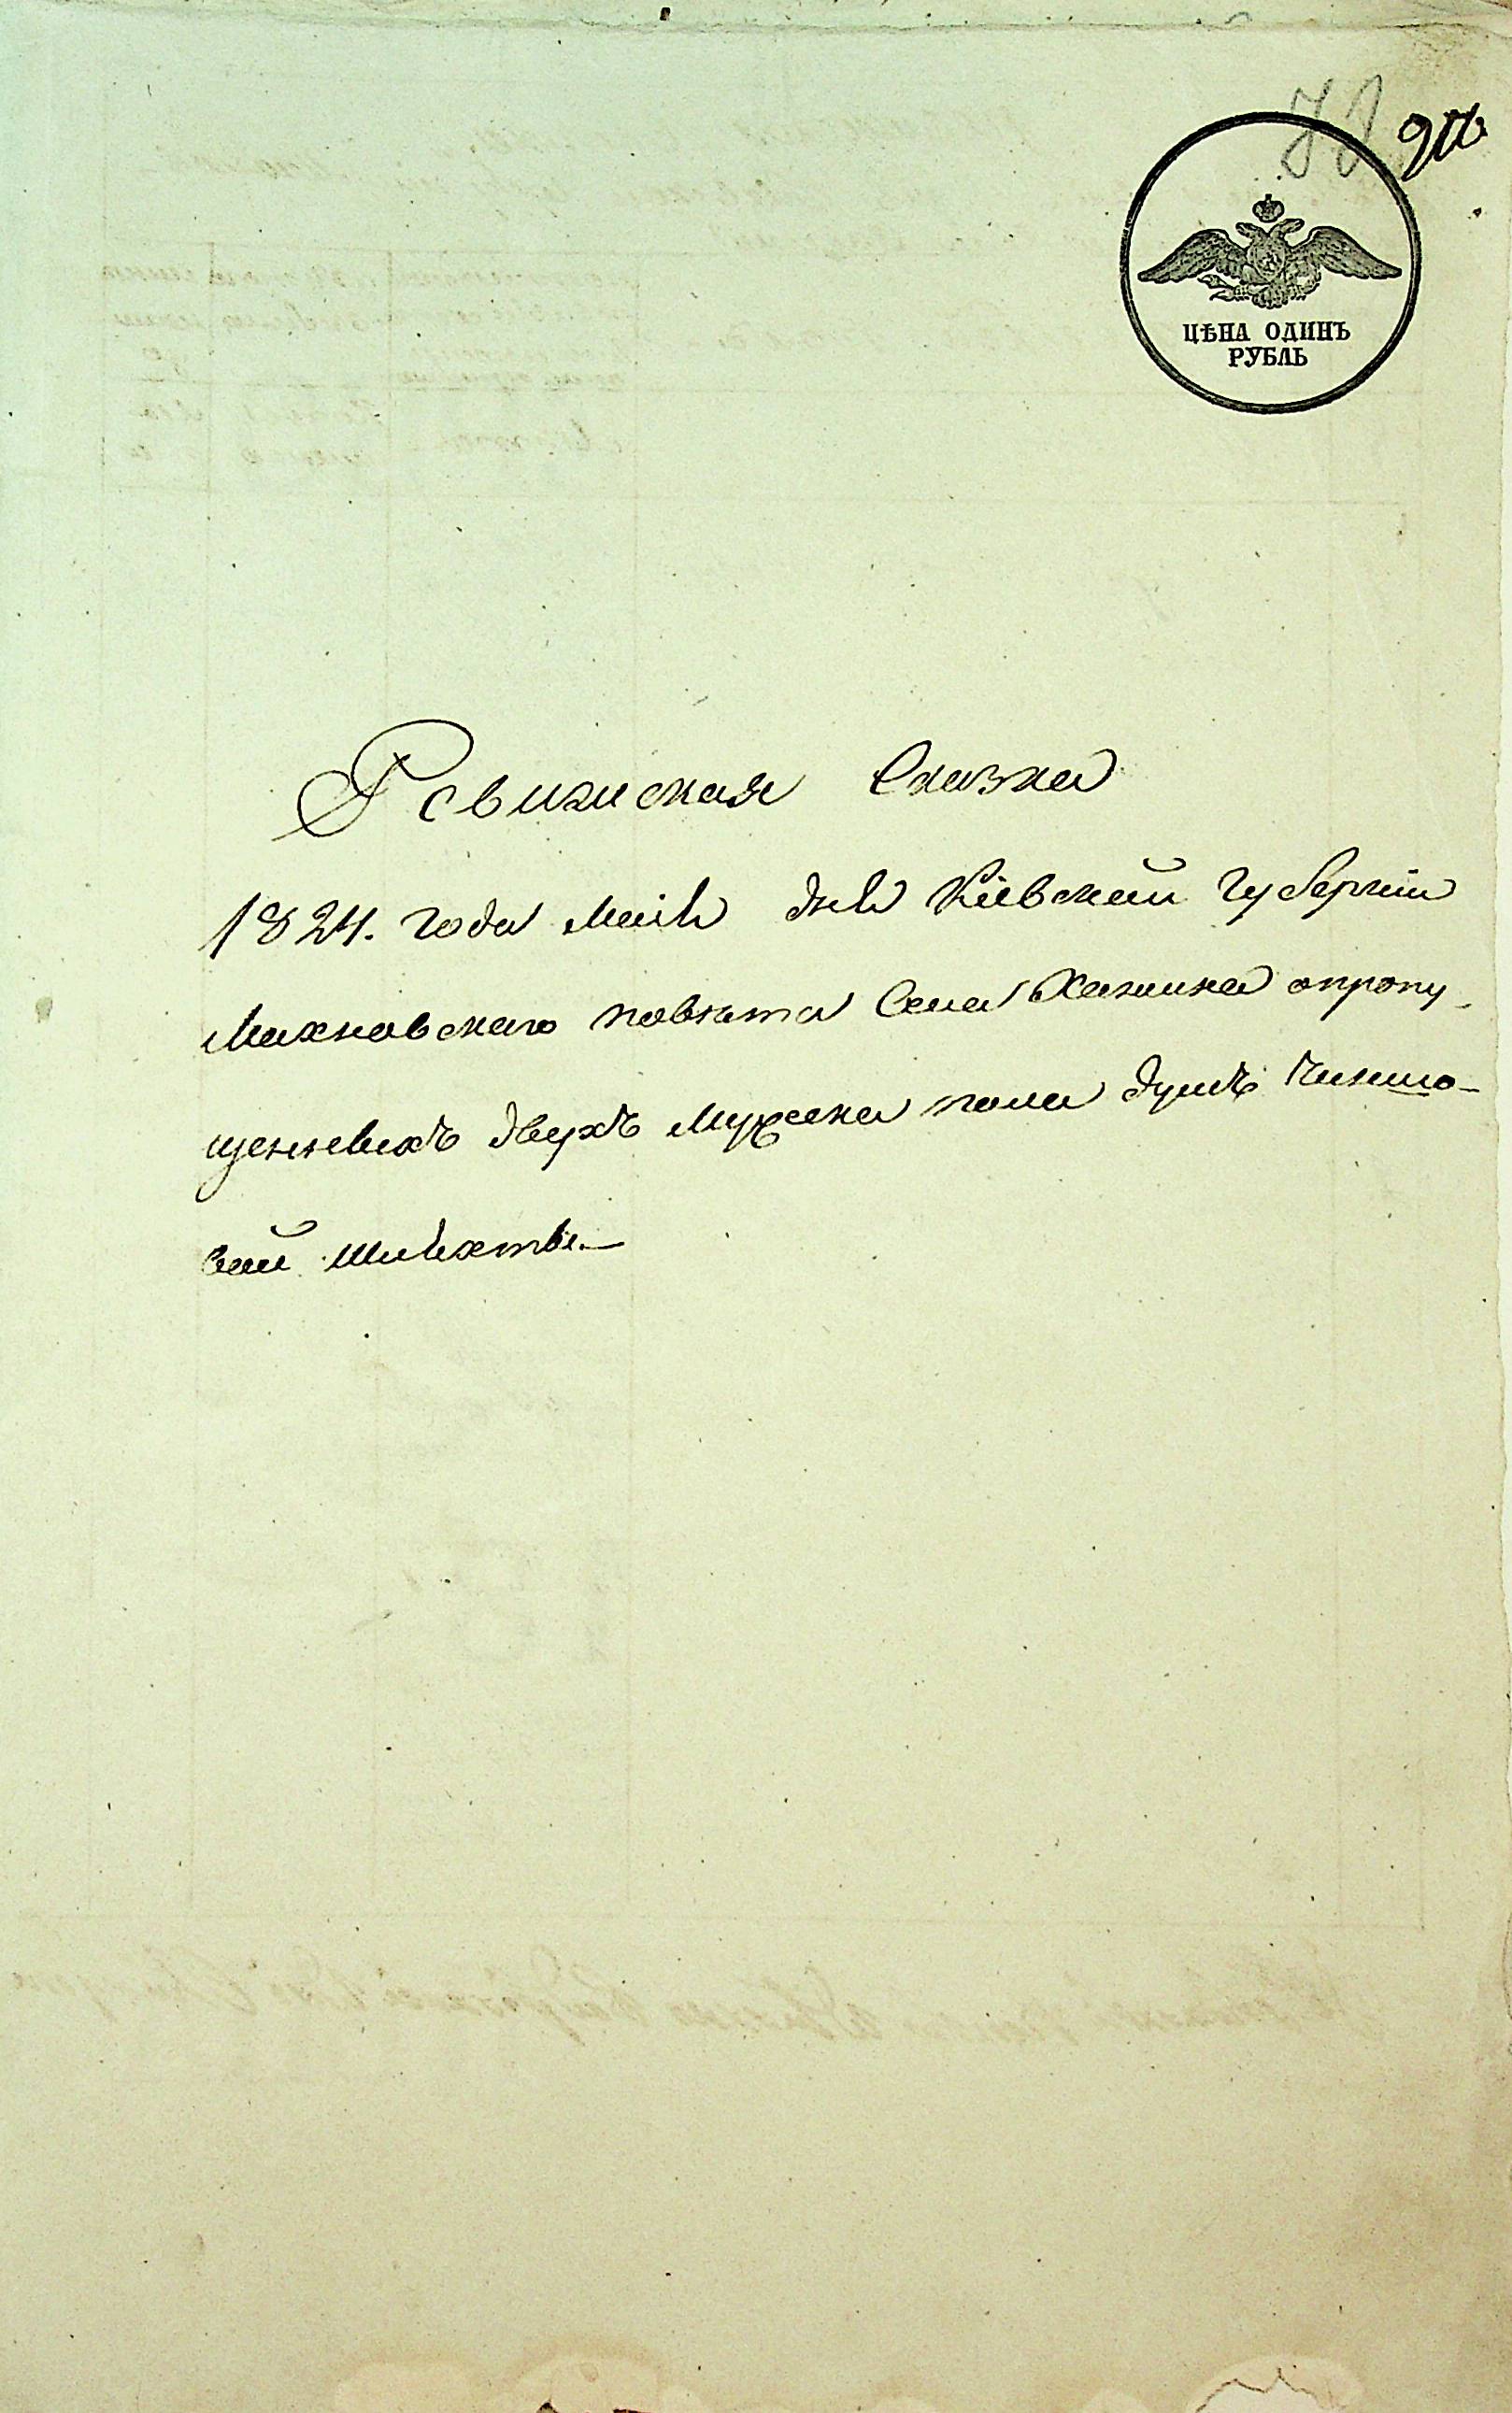 ЦѢНА ОДИНЪ
РУБЛЬ
Ревизиская Сказка
1824. года Маія дня Кіевской Губерніи
Махновскаго повѣта Села опропу-
щенныхъ двухъ Мужеска пола душъ Чиншо-
вой Шляхты.